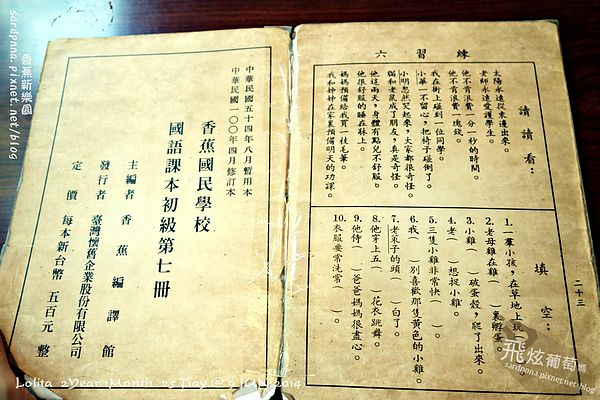 練習六
請讀讀看：
太陽永遠從東邊出來。
老師永遠愛護學生。
他不肯浪費一分一秒的時間。
他不肯浪費一塊錢。
我在街上碰到一位同學。
小華一不留心，把椅子碰倒了。
小明忽然哭起來，大家都很奇怪。
貓和老鼠成了朋友，真是奇怪。
他這兩天，身體有點兒不舒服。
他很舒服的睡在牀上。
媽媽預備給我買一枝毛筆。
我和妹妹在家裏預備明天的功課。
填空：
1. 一羣小孩，在草地上玩（
2. 老母雞在雞（　）裏孵蛋。
3. 小雞（　）破蛋殼，爬了出來。
4. 老（　）想捉小雞。
5. 三隻小雞非常快（　）。
6. 我（　）別喜歡那隻黃色的小雞。
7. 老菜子的頭（　）白了。
8. 他穿上五（　）花衣跳舞。
9. 他侍（　）爸爸媽媽很盡心。
10. 衣服要常洗常（　）。
二十三
中華民國五十四年八月暫用本
中華民國一〇〇年四月修訂本
香蕉國民學校
國語課本初級第七冊
主編者 香蕉編譯館
發行者 臺灣懷舊企業股份有限公司
定價 每本新台幣 五百元 整
香蕉新樂園
sardpnna.pixnet.net/blog
飛炫葡萄媽
sardpnna.pixnet.net/blog
Lolita 2Year 1Month 25 Day @ 2014